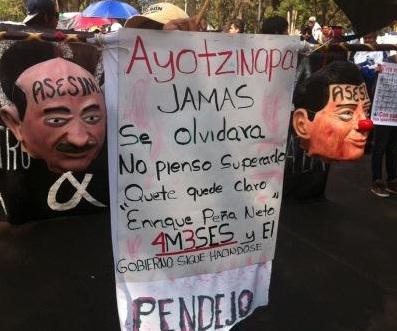 Ayotzinapa
JAMAS
Se olvidara
No pienso Superarlo
Quete quede Claro
"Enrique Peña Nieto"
4M3SES y El
GOBIERNO SIGUE HACIENDOSE
PENDEJO
ASESIN
ASESI